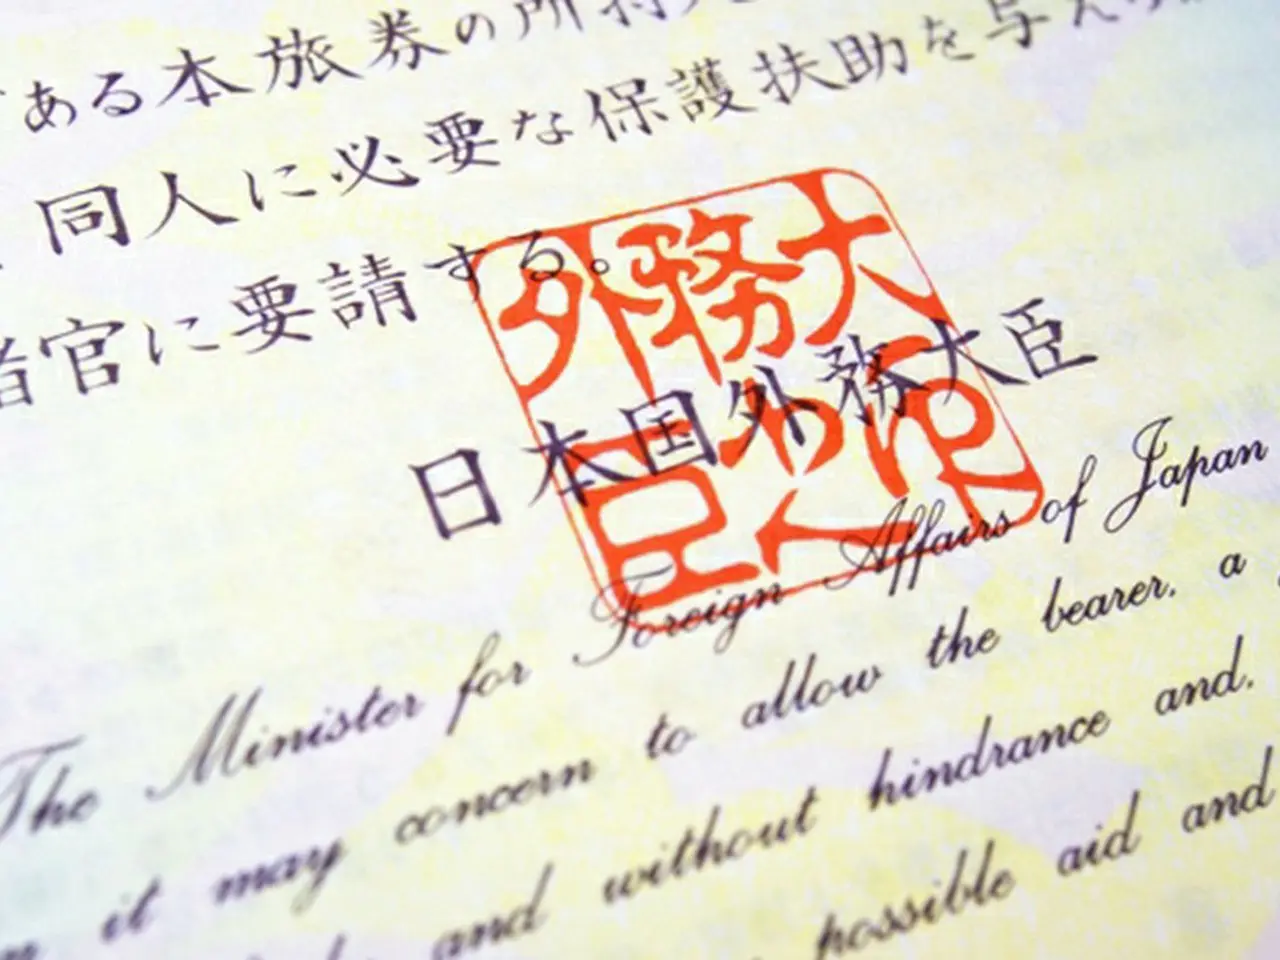 ある本旅券の所持人
同人に必要な保護扶助を与え
者官に要請する。
外務大
臣之印
日本国外務大臣
The Minister for Foreign Affairs of Japan
it may concern to allow the bearer, a
and without hindrance and,
possible aid and